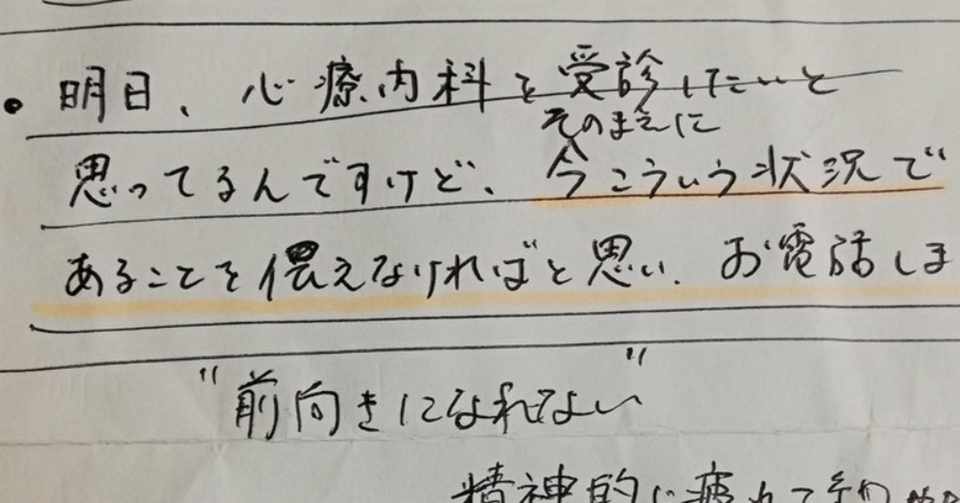 ・明日、心療内科を受診したいと
そのまえに
思ってるんですけど、今こういう状況で
あることを伝えなければと思い、お電話しま
"前向きになれない"
精神的に疲れて